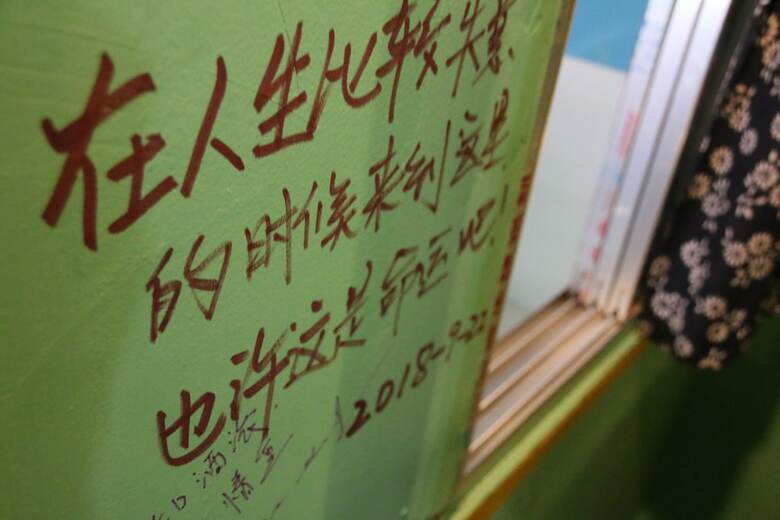 在人生比较失意
的时候来到这里
也许这是命运吧！
2018-9-22
口酒浓
情至